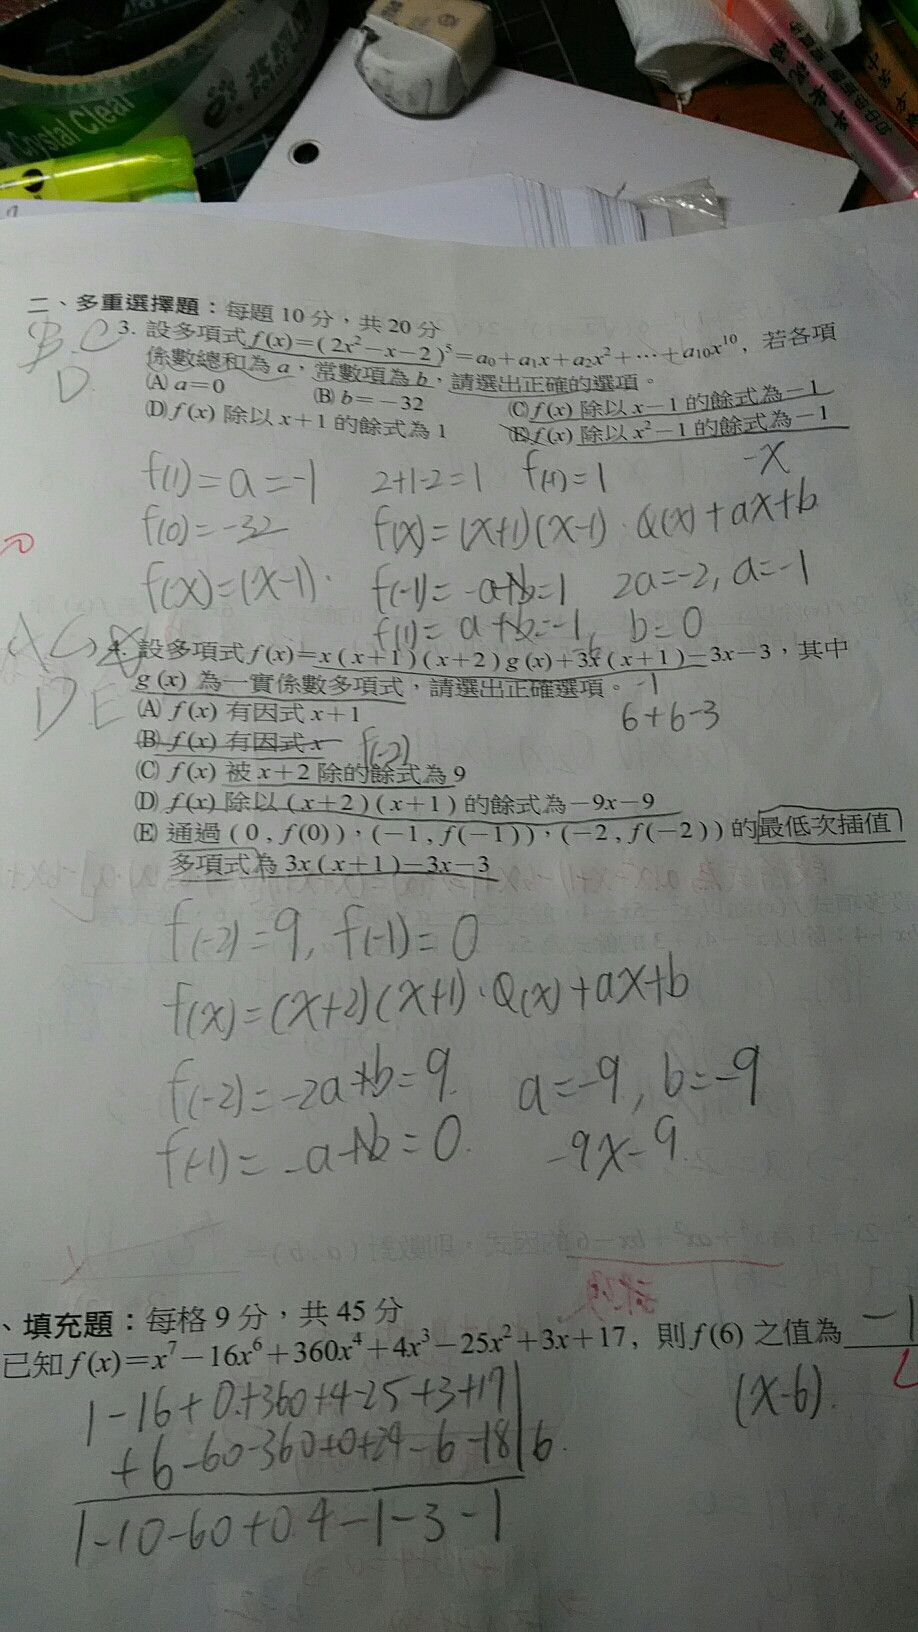 Crystal Clear
二、多重選擇題：每題 10 分，共 20 分
B.C
D.
3. 設多項式 f(x)=(2x²−x−2)⁵=a₀+a₁x+a₂x²+⋯+a₁₀x¹⁰，若各項
係數總和為 a，常數項為 b，請選出正確的選項。
(A) a=0 (B) b=−32 (C) f(x) 除以 x−1 的餘式為−1
(D) f(x) 除以 x+1 的餘式為 1 (E) f(x) 除以 x²−1 的餘式為−1
-x
f(1)=a=-1 2+1-2=1 f(-1)=1
f(0)=-32 f(x)=(x+1)(x-1)·Q(x)+ax+b
f(x)=(x-1)· f(-1)=-a+b=1 2a=-2, a=-1
f(1)=a+b=-1, b=0
AC
DE
4. 設多項式 f(x)=x(x+1)(x+2)g(x)+3x(x+1)−3x−3，其中
g(x) 為一實係數多項式，請選出正確選項。
-1
(A) f(x) 有因式 x+1
6+6-3
(B) f(x) 有因式 x
f(-2)
(C) f(x) 被 x+2 除的餘式為 9
(D) f(x) 除以 (x+2)(x+1) 的餘式為−9x−9
(E) 通過 (0, f(0))，(−1, f(−1))，(−2, f(−2)) 的最低次插值
多項式為 3x(x+1)−3x−3
f(-2)=9, f(-1)=0
f(x)=(x+2)(x+1)·Q(x)+ax+b
f(-2)=-2a+b=9. a=-9, b=-9
f(-1)=-a+b=0. -9x-9.
、填充題：每格 9 分，共 45 分
已知 f(x)=x⁷−16x⁶+360x⁴+4x³−25x²+3x+17, 則 f(6) 之值為 -1
(x-6).
1-16+0+360+4-25+3+17
+6-60-360+0+24-6-18 6.
1-10-60+0.4-1-3-1